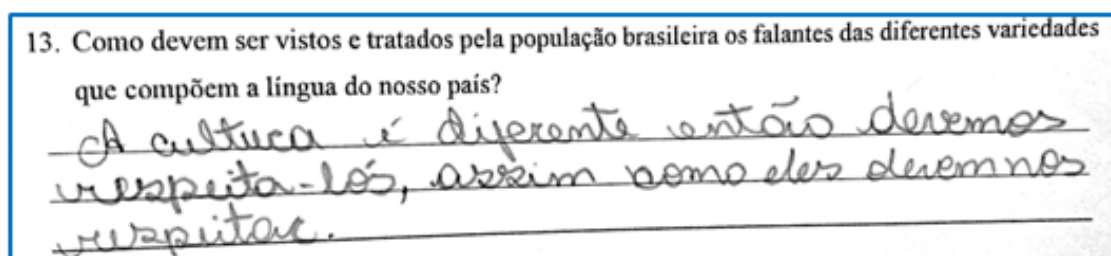 13. Como devem ser vistos e tratados pela população brasileira os falantes das diferentes variedades
que compõem a língua do nosso país?
A cultura é diferente então devemos
respeita-lós, assim como eles devemnos
respeitar.